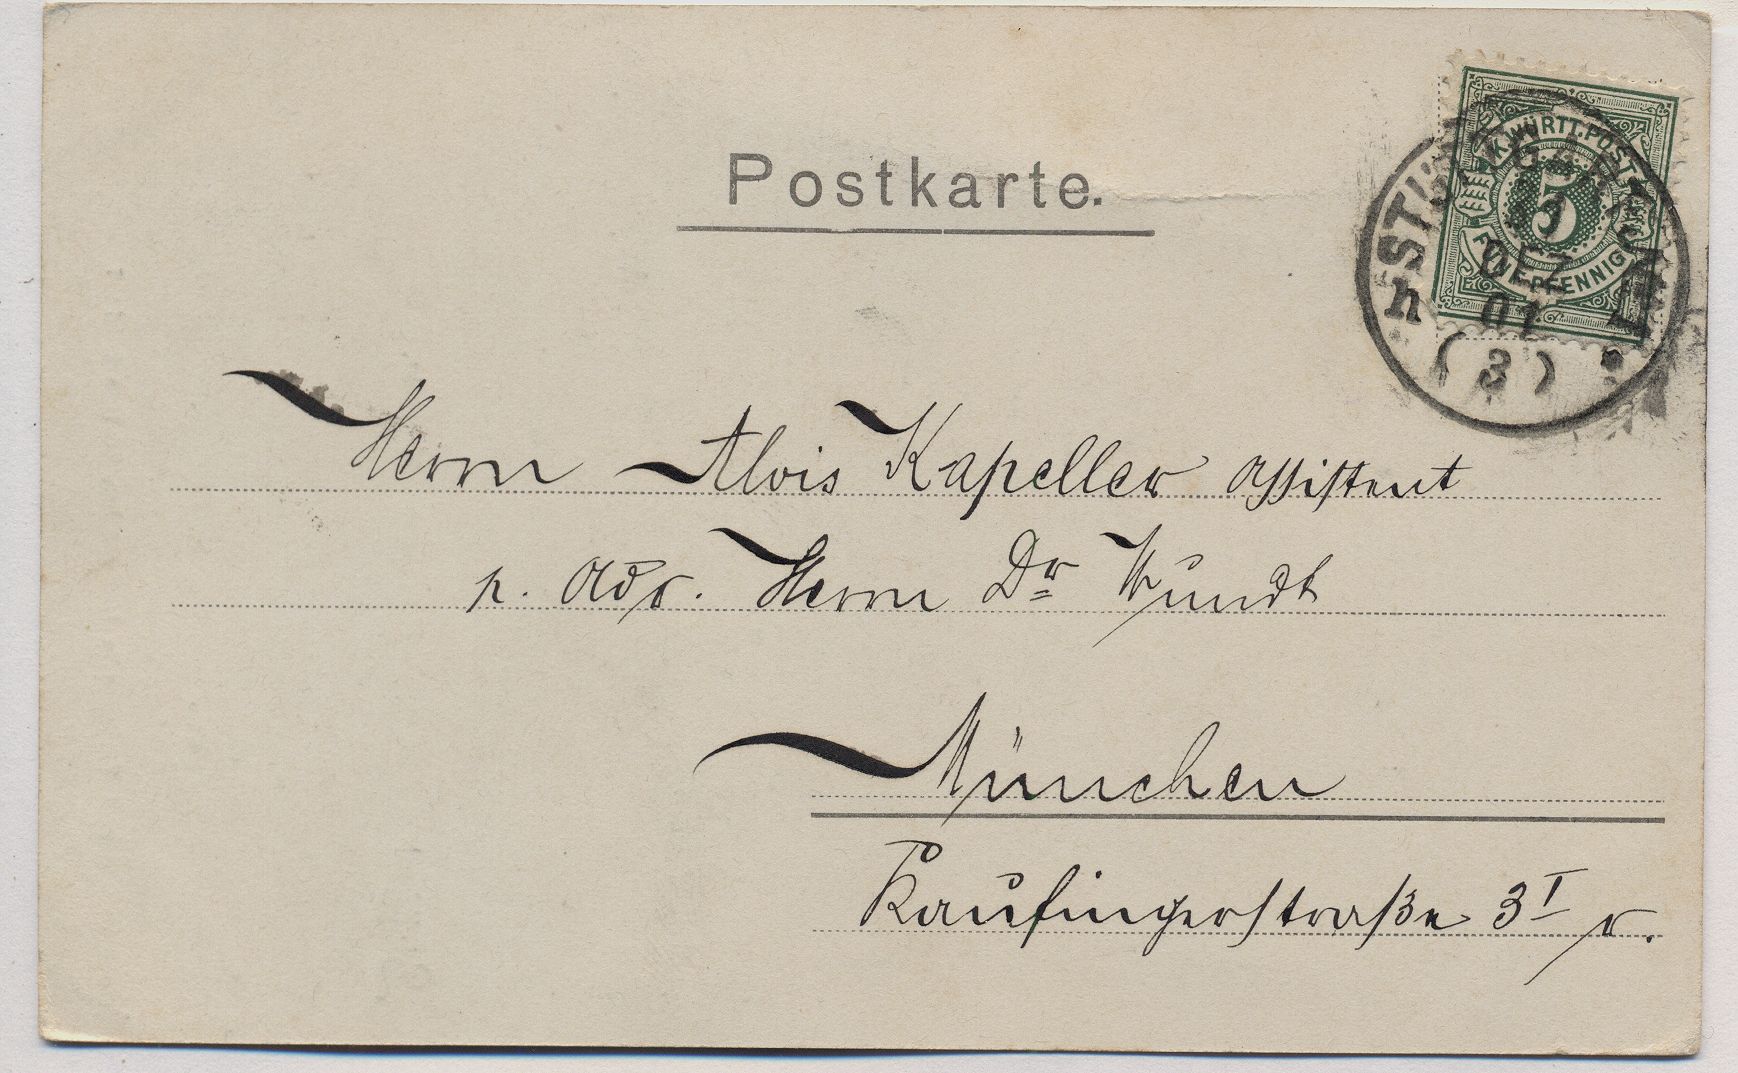 Postkarte.
K. WÜRTT. POST
5
FÜNF PFENNIG
DEZ
01
h
(3)
Herrn Alois Kapeller Assistent
p. Adr. Herrn Dr Wundt
München
Kaufingerstraße 3 I r.